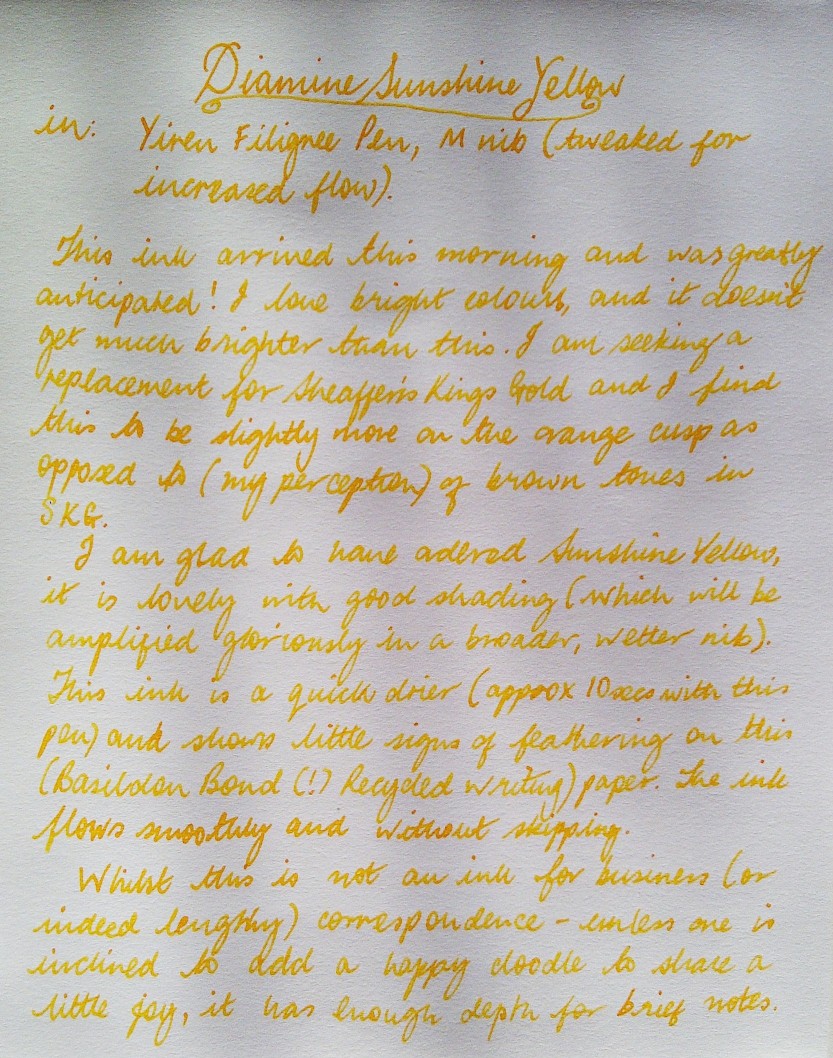 Diamine Sunshine Yellow
in: Yiren Filigree Pen, M nib (tweaked for
increased flow).
This ink arrived this morning and was greatly
anticipated! I love bright colours, and it doesn't
get much brighter than this. I am seeking a
replacement for Sheaffer's Kings Gold and I find
this to be slightly more on the orange cusp as
opposed to (my perception) of brown tones in
SKG.
I am glad to have ordered Sunshine Yellow,
it is lovely with good shading (which will be
amplified gloriously in a broader, wetter nib).
This ink is a quick drier (approx 10secs with this
pen) and shows little signs of feathering on this
(Basildon Bond (!) Recycled Writing) paper. The ink
flows smoothly and without skipping.
Whilst this is not an ink for business (or
indeed lengthy) correspondence - unless one is
inclined to add a happy doodle to share a
little joy, it has enough depth for brief notes.